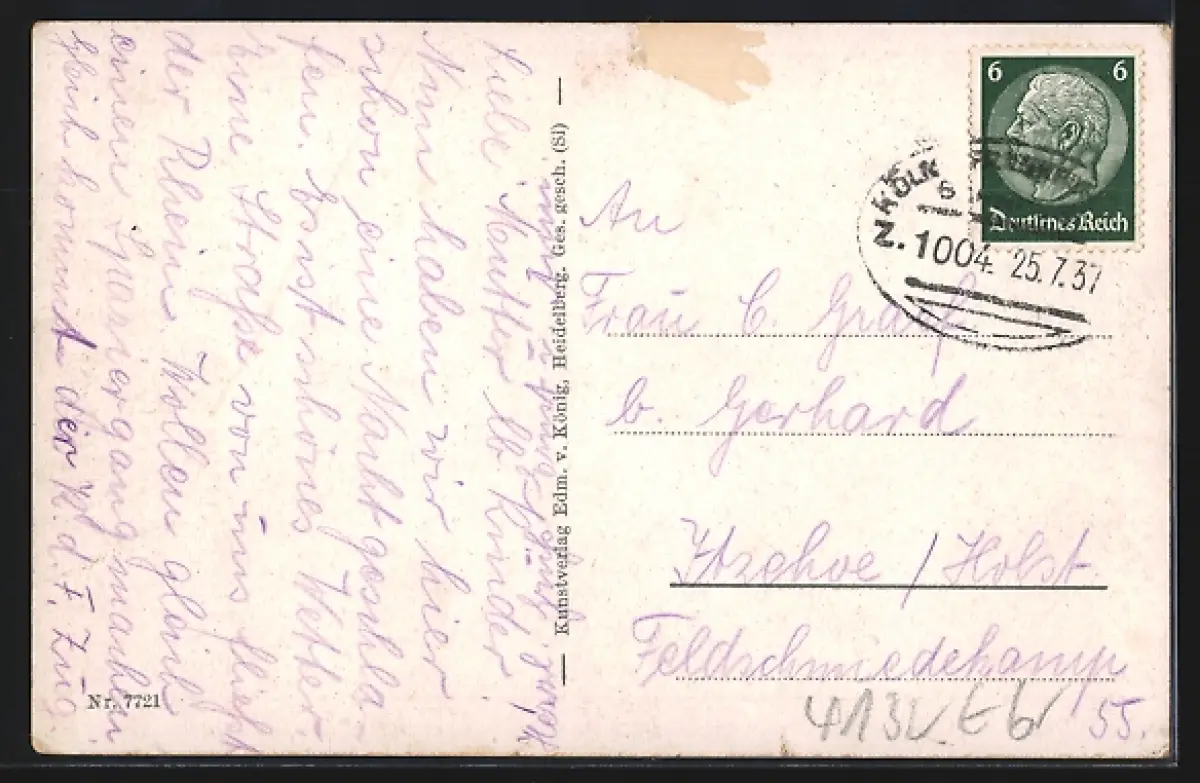 Liebe Mutter lb Kinder!
Nun haben wir hier
schon eine Nacht geschla-
fen. Es ist schönes Wetter.
Eine Straße von uns fließt
der Rhein. Wollen gleich
einen Spaziergang machen
gleich kommt der K.d.F. Zug
Kunstverlag Edm. v. König, Heidelberg. Ges. gesch. (Sl)
Nr. 7721
6 6
Deutsches Reich
KÖLN
Z. 1004. 25.7.37
An
Frau C. Graf
b. Gerhard
Itzehoe / Holst.
Feldschmiedekamp
55.